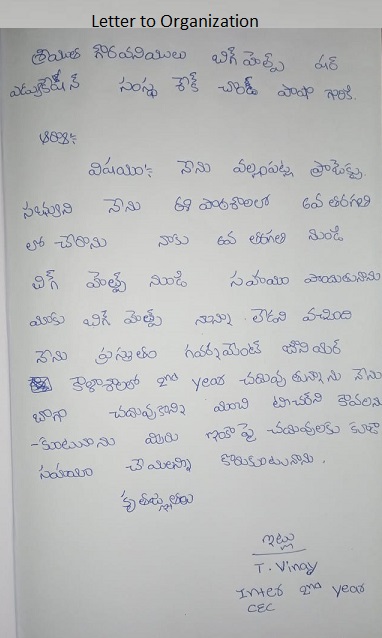 Letter to Organization
శ్రాయిత గౌరవనియులు బిగ్ హెల్ప్ ఫర్
ఎడ్యుకేషన్ సంస్థ పాషా గారికి.
విషయం:- నేను ప్రాజెక్టు
నేను ఈ పాఠశాలలో 6వ తరగతి
లో చేరాను నాకు 6వ తరగతి నుండి
బిగ్ హెల్ప్ నుండి సహాయం
బిగ్ హెల్ప్
నేను ప్రస్తుతం గవర్నమెంట్ జూనియర్
కాలేజీలో 2nd year చదువుతున్నాను నేను
బాగా చదువుకొని మంచి టీచర్ని కావలను
-కుంటునాను మీరు ఇంకా పై చదువులకు కుడా
సహయం చేయలన్ని కోరుకుంటునాను.
కృతజ్ఞతలు
ఇట్లు
T. Vinay
Inter 2nd year
CEC